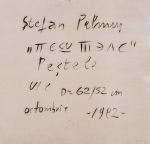 Ștefan Pelmuș
Peștele
u/c D=62/52 cm
octombrie -1982-